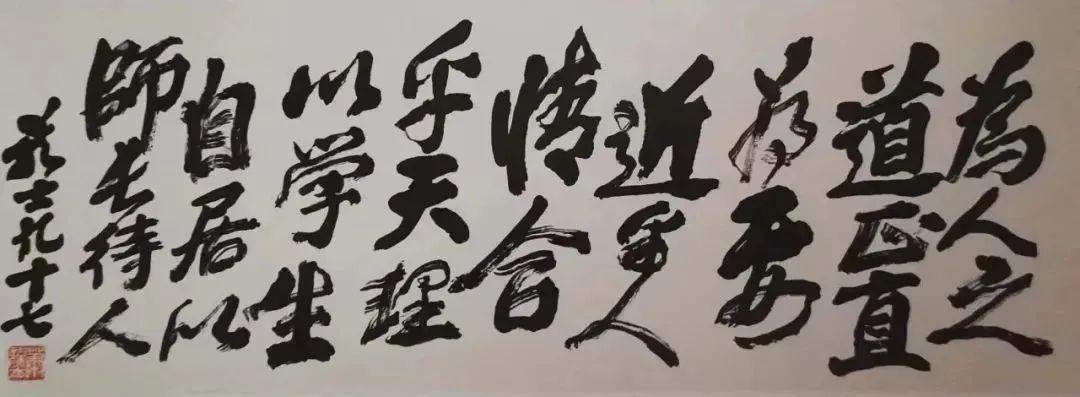 為人之
道正直
為要
近乎人
情合
乎天理
以学生
自居以
師长待人
九十七